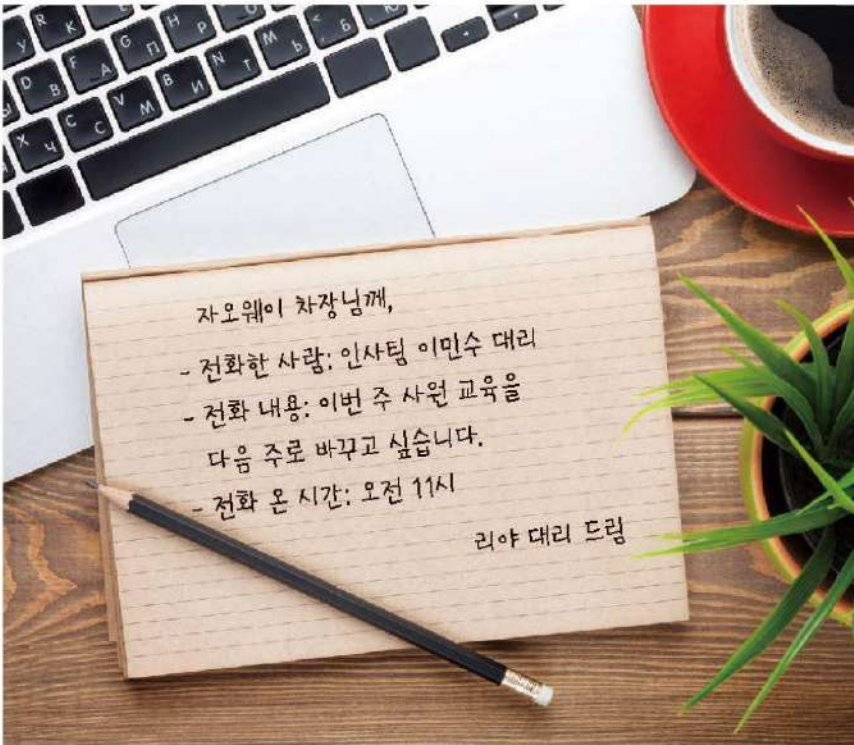 자오웨이 차장님께,
- 전화한 사람: 인사팀 이민수 대리
- 전화 내용: 이번 주 사원 교육을
다음 주로 바꾸고 싶습니다.
- 전화 온 시간: 오전 11시
리야 대리 드림